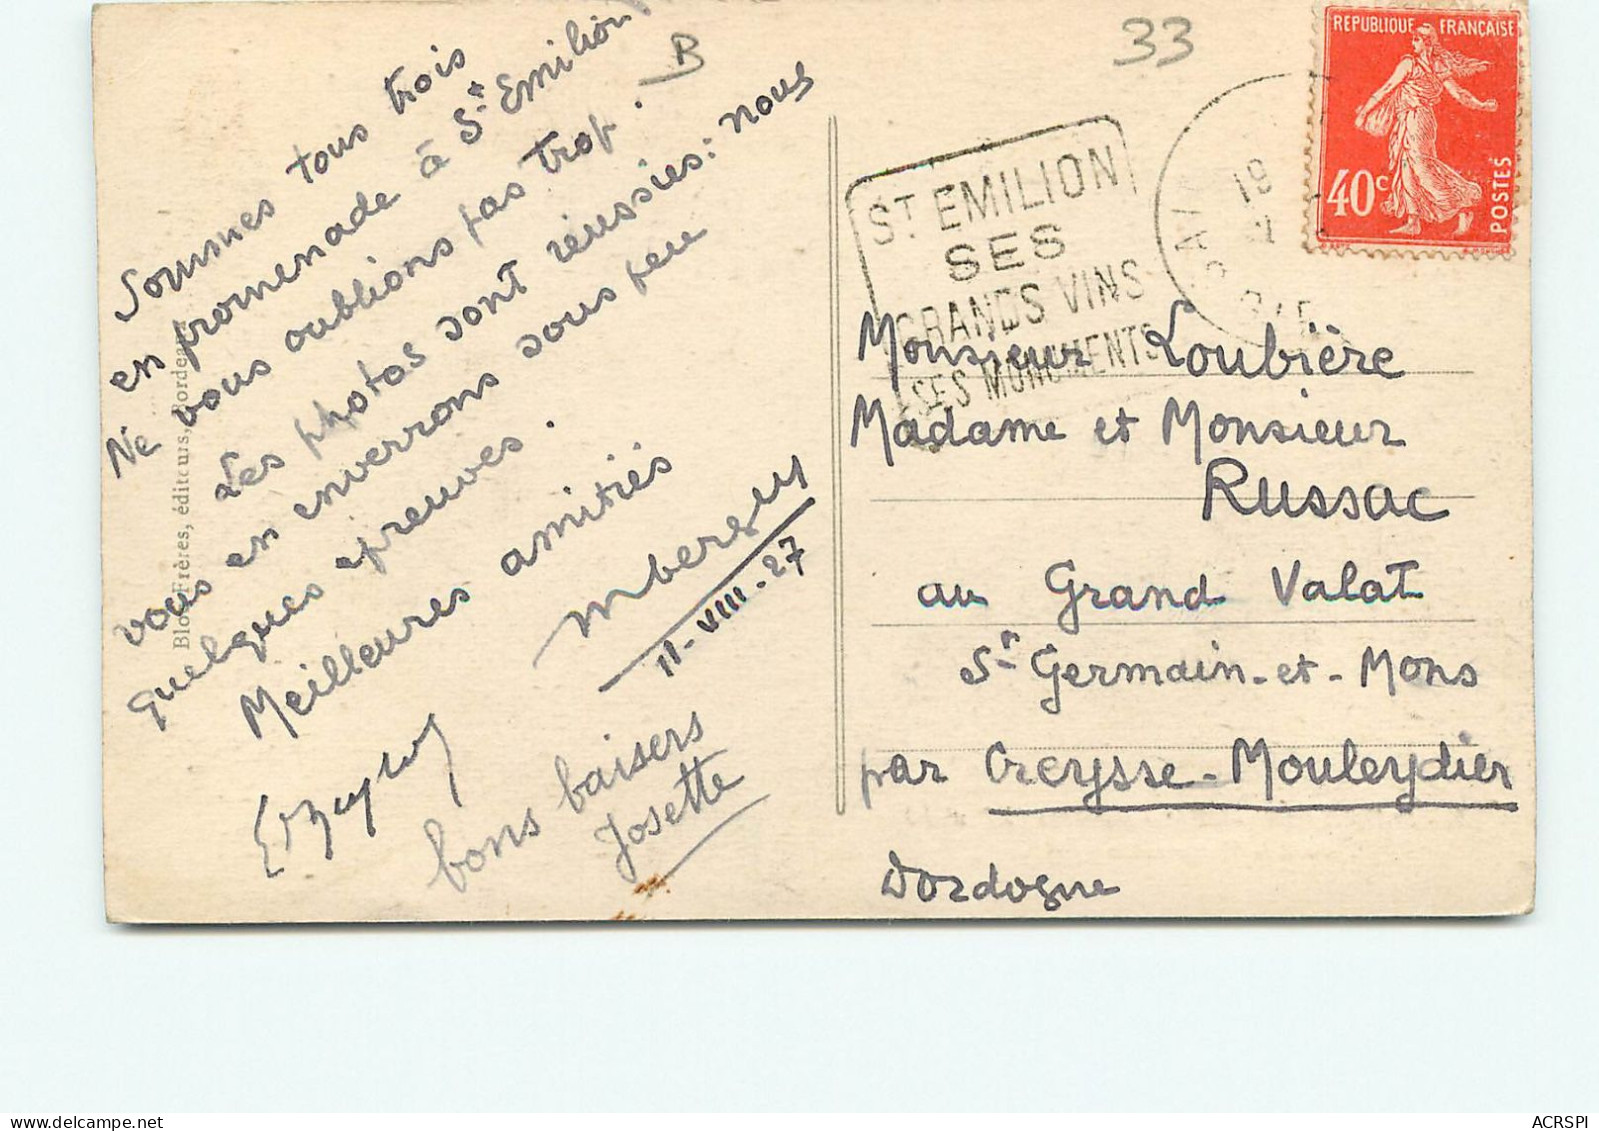 Sommes tous trois
en promenade à St Emilion
Ne vous oublions pas trop.
Les photos sont réussies: nous
vous en enverrons sous peu
quelques épreuves.
Meilleures amitiés
11-VIII-27
bons baisers
Josette
Frères, éditeurs, Bordeaux
B
33
REPUBLIQUE FRANÇAISE
40c
POSTES
ST EMILION
SES
GRANDS VINS
SES MONUMENTS
19
Monsieur Loubière
Madame et Monsieur
Russac
au Grand Valat
St Germain-et-Mons
par Creysse-Mouleydier
Dordogne
ACRSPI